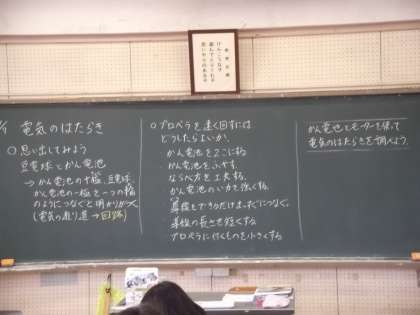 教育目標
けんこうな子
進んでとりくむ子
思いやりのある子
電気のはたらき
○思い出してみよう
豆電球とかん電池
→かん電池の+極、豆電球、
かん電池の-極を一つの輪
のようにつなぐと明かりがつく。
(電気の通り道→回路)
○プロペラを速く回すには
どうしたらよいか。
かん電池を2こにする。
かん電池をふやす。
ならべ方を工夫する。
かん電池のいりょくを強くする。
導線をできるだけまっすぐにつなぐ。
導線の長さを短くする。
プロペラに付くものを小さくする。
かん電池とモーターを使って
電気のはたらきを調べよう。